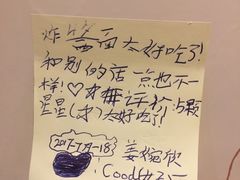 炸酱面太好吃了!
和别的店一点也不
一样!♡才讲评价占颗
星星(才)太好吃了!
2017-7月-18
姜婉欣
Good